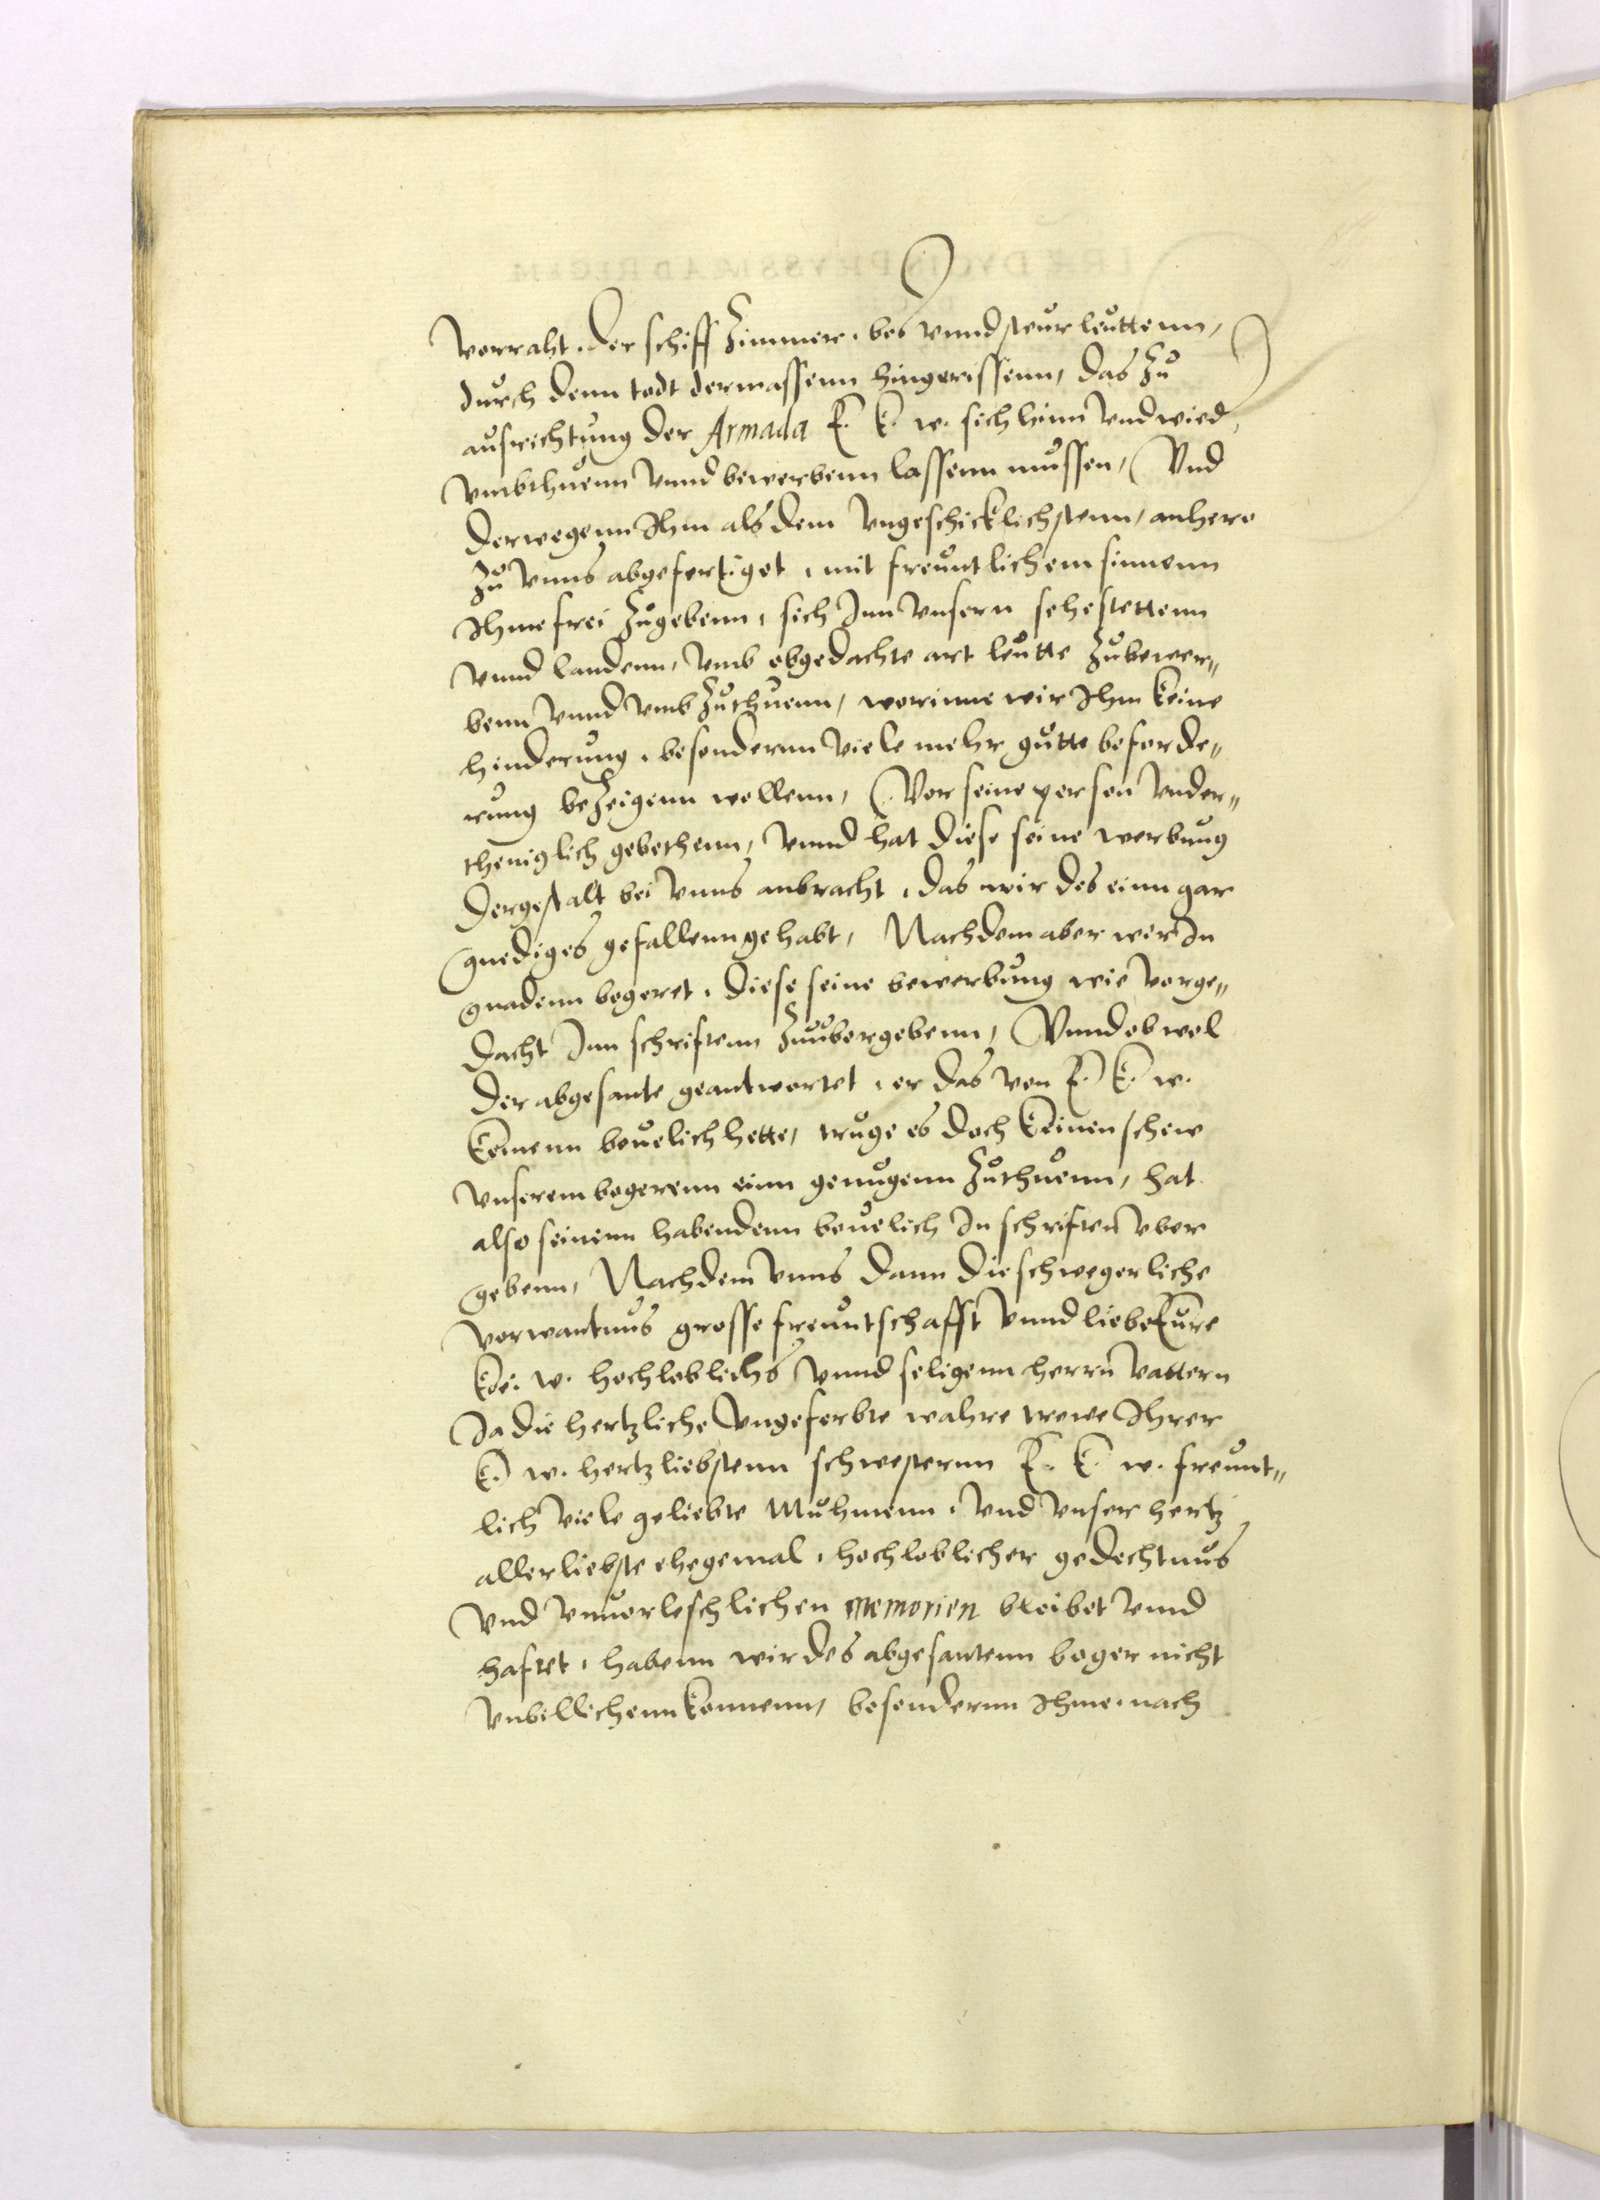 vorraht, der schiff Zimmer, bos vnnd steur leuttenn,
durch denn todt dermassenn hingerissenn, das Zu
ausrichtung der Armada E. K. w. sich hinn vnd wied,
vmbthuenn vnnd bewerbenn lassenn mussen, Vnd
derwegenn Ihm als dem vngeschicklichstenn, anhero
Zu vnns abgefertiget, mit freuntlichem sinnenn
Ihme frei Zugebenn, sich Inn vnsern sehestettenn
vnnd landenn, vmb obgedachte art leutte Zubewer„
benn vnnd vmb Zuthuenn, worinne wir Ihm keine
hinderung, besondernn viele mehr gutte beforde„
rung beZeigenn wollenn, Vor seine person vnder„
theniglich gebethenn, vnnd hat diese seine werbung
dergestalt bei vnns anbracht, das wir des einn gar
gnediges gefallenn gehabt, Nachdem aber wir In
gnadenn begeret, diese seine bewerbung wie vorge„
dacht Inn schriftenn Zuubergebenn, Vnnd ob wol
der abgesante geantwortet, er das von E. K. w.
keinenn beuelich hette, truge es doch keinen schew
vnserem begerenn einn genugenn Zuthuenn, hat
also seinenn habendenn beuelich In schriften vber
gebenn, Nachdem vnns dann die schwegerliche
vorwantnus grosse freuntschafft vnnd liebe Eure
Koe. w. hochloblichs vnnd seligenn herrn vattern
Ja die hertzliche vngeferbte wahre trewe Ihrer
K. w. hertzliebstenn schwesternn E. K. w. freunt„
lich viele geliebte Muhmenn, vnd vnser hertz
allerliebste ehegemal, hochloblicher gedechtnus
vnd vnuorleschlichen memorien bleibet vnnd
haftet, habenn wir des abgesantenn beger nicht
vnbillichenn konnenn, besondernn Ihme, nach